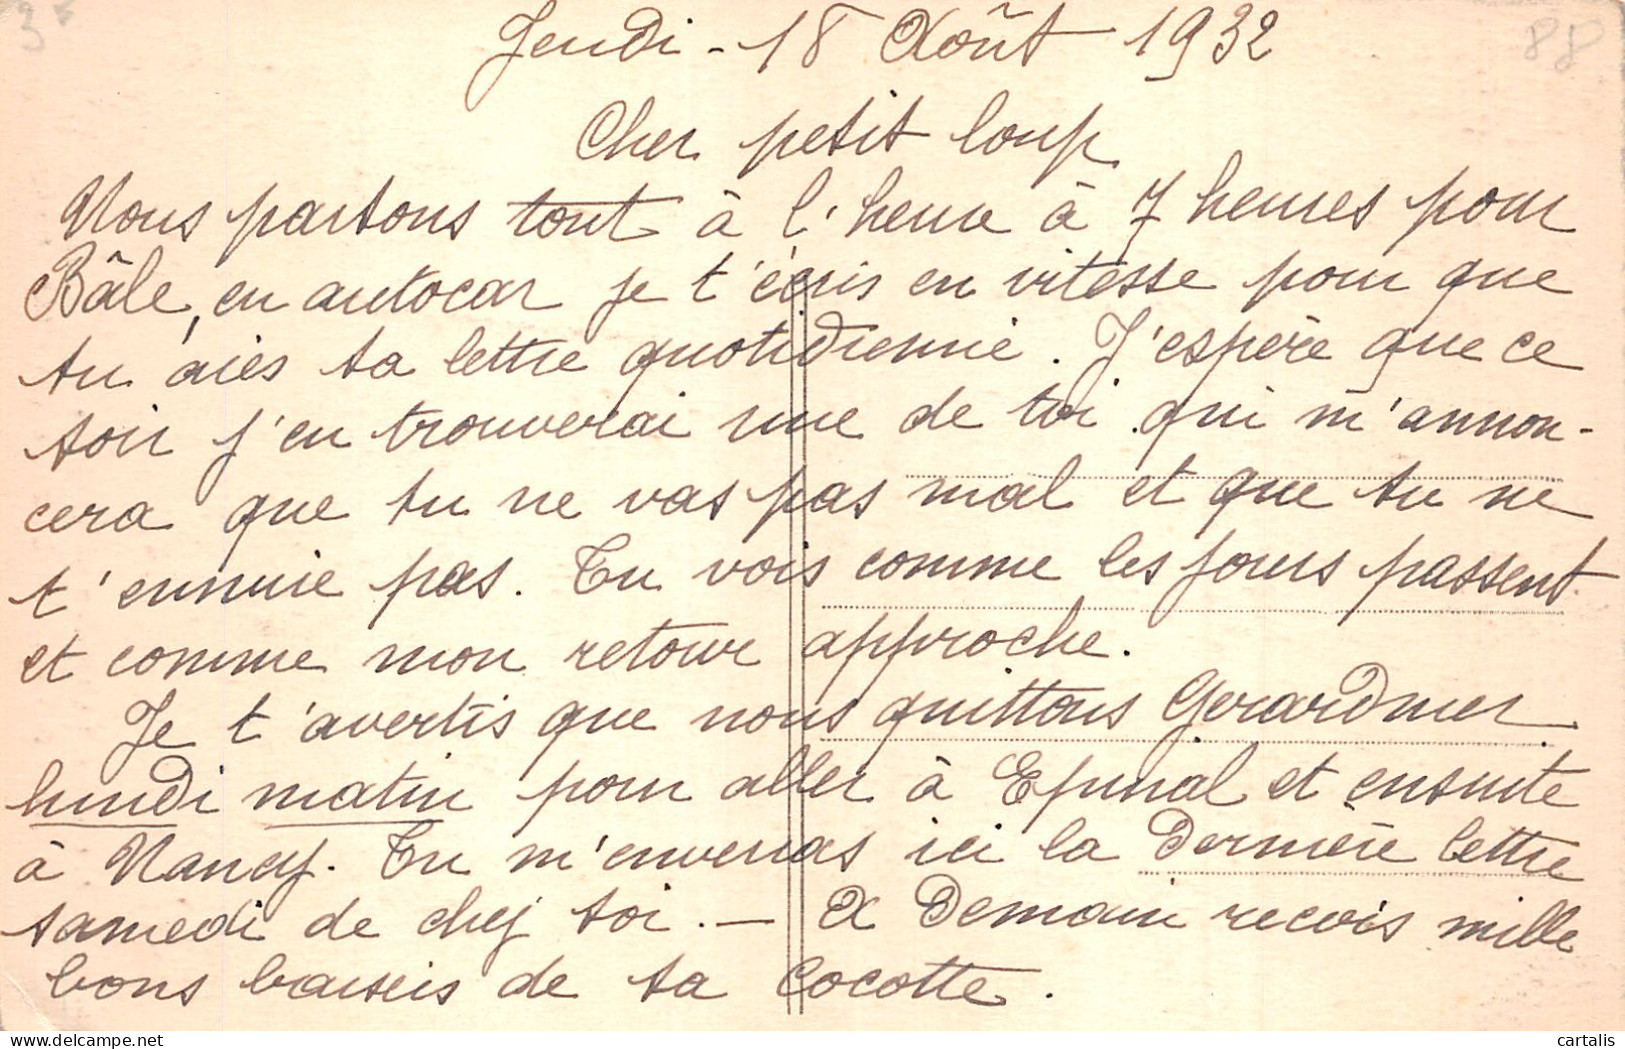 3
88
Jeudi - 18 Août 1932
Cher petit loup
Nous partons tout à l'heure à 7 heures pour
Bâle, en autocar je t'écris en vitesse pour que
tu aies ta lettre quotidienne. J'espère que ce
soir j'en trouverai une de toi qui m'annon-
cera que tu ne vas pas mal et que tu ne
t'ennuie pas. Tu vois comme les jours passent
et comme mon retour approche.
Je t'avertis que nous quittons Gerardmer
lundi matin pour aller à Epinal et ensuite
à Nancy. Tu m'enverras ici la dernière lettre
samedi de chez toi. — A Demain reçois mille
bons baisers de ta Cocotte.
cartalis